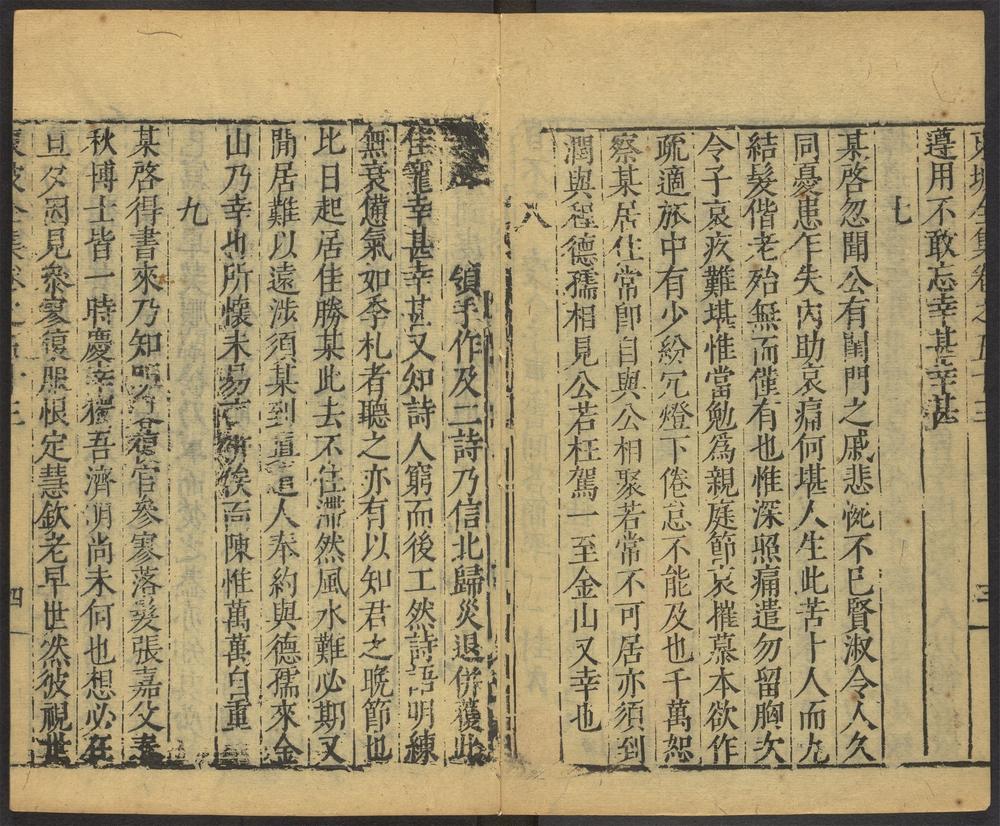 遵用不敢忘幸甚幸甚
七
某啓忽聞公有閨門之戚悲惋不已賢淑令人久
同憂患乍失內助哀痛何堪人生此苦十人而九
結髮偕老殆無而僅有也惟深照痛遣勿留胸次
令子哀疚難堪惟當勉爲親庭節哀摧慕本欲作
疏適旅中有少紛冗燈下倦怠不能及也千萬恕
察某居住常卽自與公相聚若常不可居亦須到
潤與程德孺相見公若枉駕一至金山又幸也
八
領手作及二詩乃信北歸災退併獲此
佳寵幸甚幸甚又知詩人窮而後工然詩語明練
無衰憊氣如季札者聽之亦有以知君之晚節也
比日起居佳勝某此去不住滯然風水難必期又
閒居難以遠涉須某到真遣人奉約與德孺來金
山乃幸也所懷未易 俟面陳惟萬萬自重
九
某啓得書來乃知 復官參寥落髮張嘉父春
秋博士皆一時慶幸獨吾濟明尚未何也想必在
旦夕因見參寥復服恨定慧欽老早世然彼視世